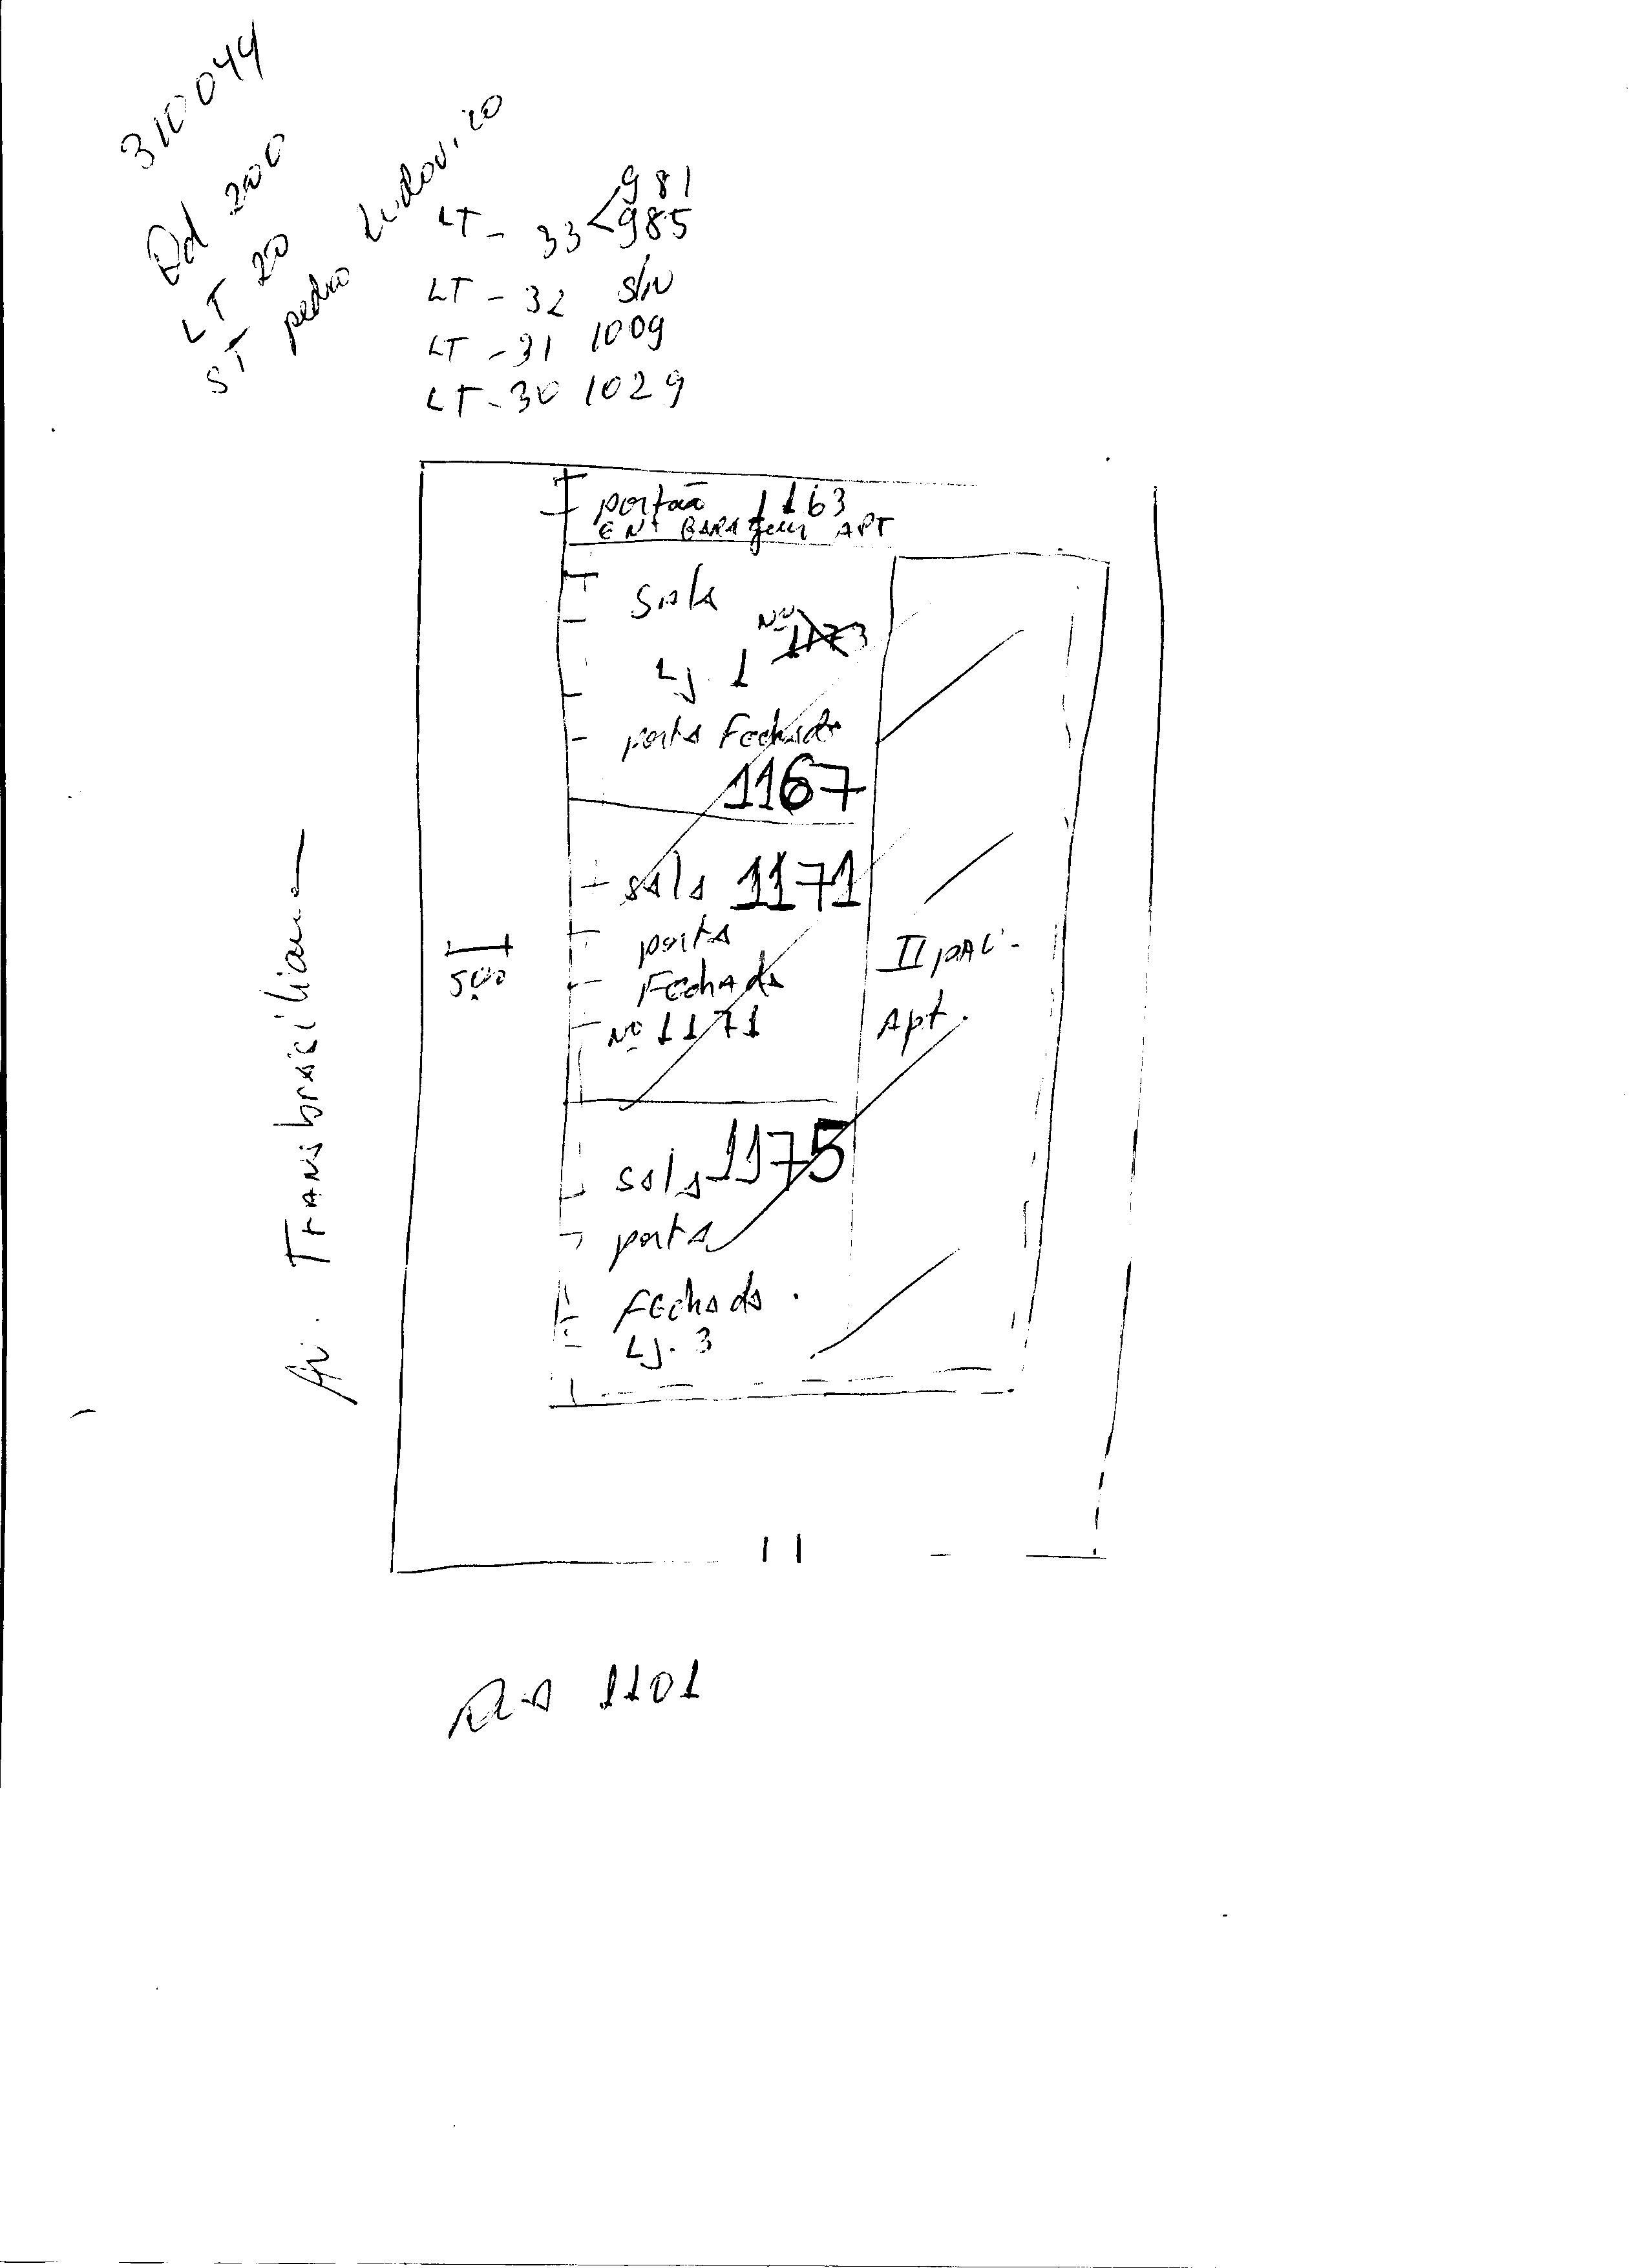 310044
Qd 200
LT 20
ST pedro Ludovico
LT - 33 < 981
985
LT - 32 S/N
LT - 31 1009
LT - 30 1029
portão 1163
ENT GARAgem APT
Sala
Nº 1173
Lj. 1
porta Fechada
1167
sala 1171
porta
Fechada
Nº 1171
II pav.
Apt.
5,00
Av. Transbrasiliana
sala 1175
porta
Fechada.
Lj. 3
Rua 1101